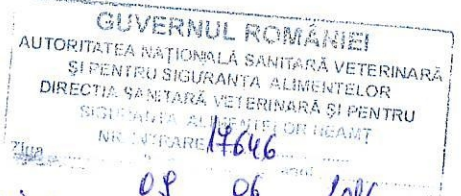 GUVERNUL ROMÂNIEI
AUTORITATEA NAȚIONALĂ SANITARĂ VETERINARĂ
ȘI PENTRU SIGURANȚA ALIMENTELOR
DIRECȚIA SANITARĂ VETERINARĂ ȘI PENTRU
SIGURANȚA ALIMENTELOR NEAMȚ
NR. INTRARE 17646
Ziua
06